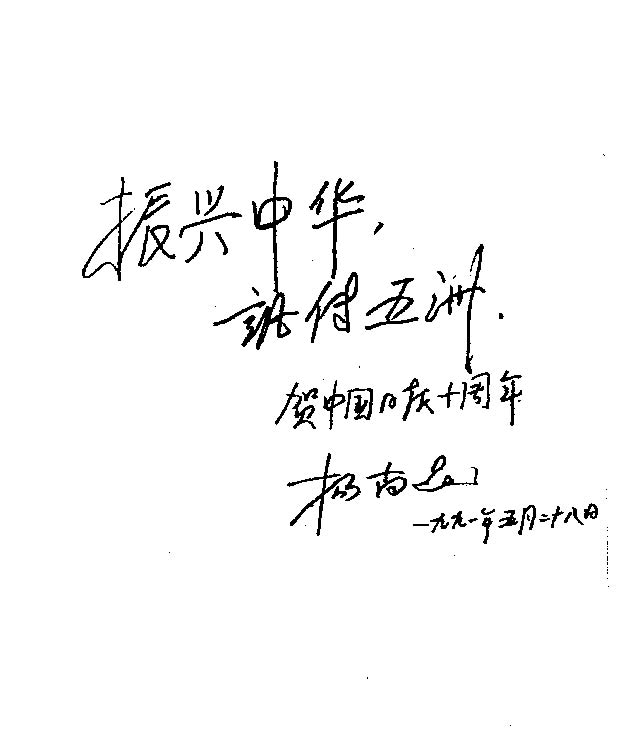 振兴中华,
訊传五洲.
贺中国日报十周年
杨尚昆
一九九一年五月二十八日